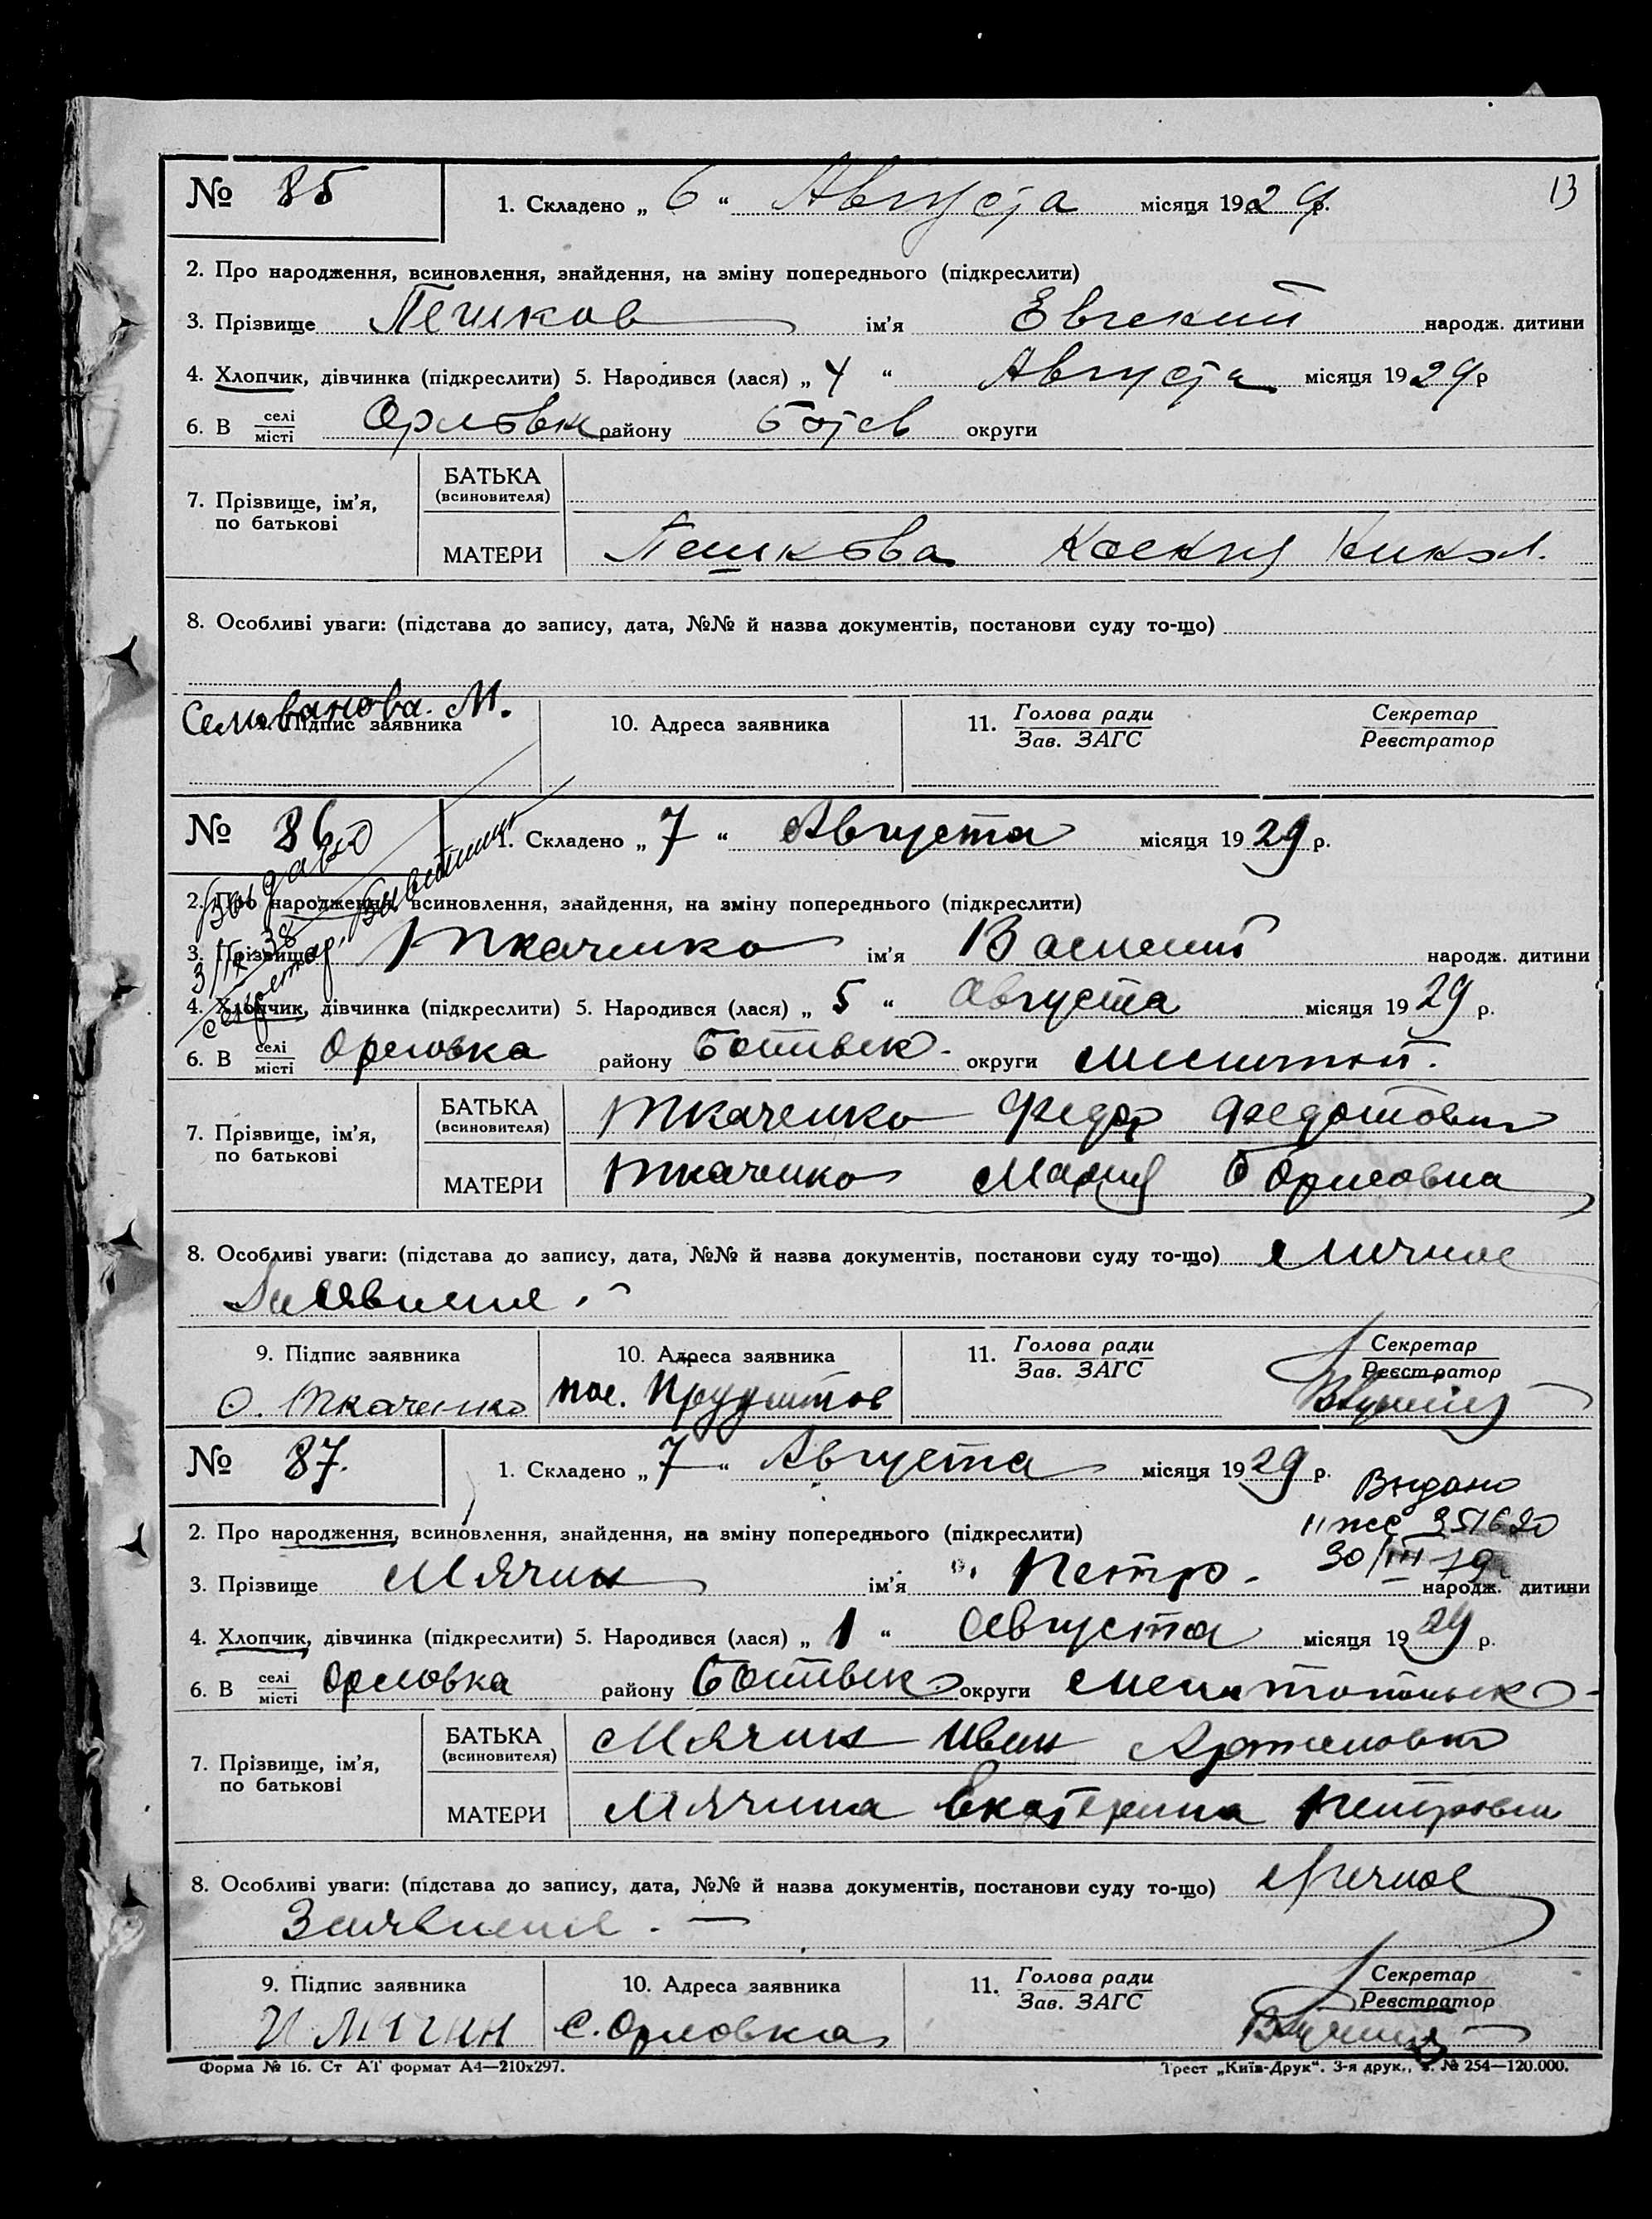 № 85 1. Складено „ 6 “ Августа місяця 1929 р. 13
2. Про народження, всиновлення, знайдення, на зміну попереднього (підкреслити)
3. Прізвище Пешков ім'я Евгений народж. дитини
4. Хлопчик, дівчинка (підкреслити) 5. Народився (лася) „ 4 “ Августа місяця 1929 р
6. В селі місті Орловк району Ботев округи
7. Прізвище, ім'я, по батькові
БАТЬКА (всиновителя)
МАТЕРИ Пешкова Никол.
8. Особливі уваги: (підстава до запису, дата, №№ й назва документів, постанови суду то-що)
Селиванова. М.
Підпис заявника 10. Адреса заявника 11. Голова ради Зав. ЗАГС Секретар Реєстратор
№ 86 1. Складено „ 7 “ Августа місяця 1929 р.
Выдано
3/IX-38
секретар.
2. Про народження, всиновлення, знайдення, на зміну попереднього (підкреслити)
3. Прізвище Ткаченко ім'я Василий народж. дитини
4. Хлопчик, дівчинка (підкреслити) 5. Народився (лася) „ 5 “ Августа місяця 1929 р.
6. В селі місті Орловка району Ботивск. округи Мелитоп.
7. Прізвище, ім'я, по батькові
БАТЬКА (всиновителя) Ткаченко Федор Федотович
МАТЕРИ Ткаченко Мария Борисовна
8. Особливі уваги: (підстава до запису, дата, №№ й назва документів, постанови суду то-що) Личное
Заявление.
9. Підпис заявника 10. Адреса заявника 11. Голова ради Зав. ЗАГС Секретар Реєстратор
Ткаченко пос.
№ 87. 1. Складено „ 7 “ Августа місяця 1929 р.
Выдано
351620
30/III-79
2. Про народження, всиновлення, знайдення, на зміну попереднього (підкреслити)
3. Прізвище Мячин ім'я Петр. народж. дитини
4. Хлопчик, дівчинка (підкреслити) 5. Народився (лася) „ 1 “ Августа місяця 1929 р.
6. В селі місті Орловка району Ботивск округи Мелитопольск
7. Прізвище, ім'я, по батькові
БАТЬКА (всиновителя) Мячин Иван Артемович
МАТЕРИ Мячина Екатерина Петровн
8. Особливі уваги: (підстава до запису, дата, №№ й назва документів, постанови суду то-що) Личное
Заявление. —
9. Підпис заявника 10. Адреса заявника 11. Голова ради Зав. ЗАГС Секретар Реєстратор
И Мячин С. Орловка
Форма № 16. Ст АТ формат А4—210х297. Трест „Київ-Друк“. 3-я друк., з. № 254—120.000.